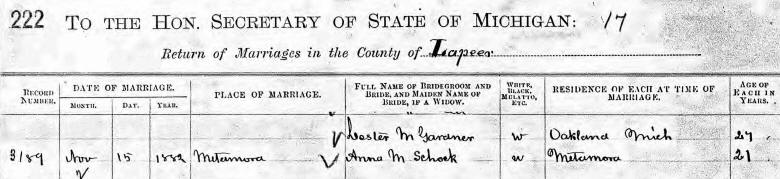 222 TO THE HON. SECRETARY OF STATE OF MICHIGAN: 17
Return of Marriages in the County of Lapeer
RECORD NUMBER. DATE OF MARRIAGE. MONTH. DAY. YEAR. PLACE OF MARRIAGE. FULL NAME OF BRIDEGROOM AND BRIDE, AND MAIDEN NAME OF BRIDE, IF A WIDOW. WHITE, BLACK, MULATTO, ETC. RESIDENCE OF EACH AT TIME OF MARRIAGE. AGE OF EACH IN YEARS.
Lester M Gardner W Oakland Mich 27
3189 Nov 15 1882 Metamora Anna M Schock W Metamora 21